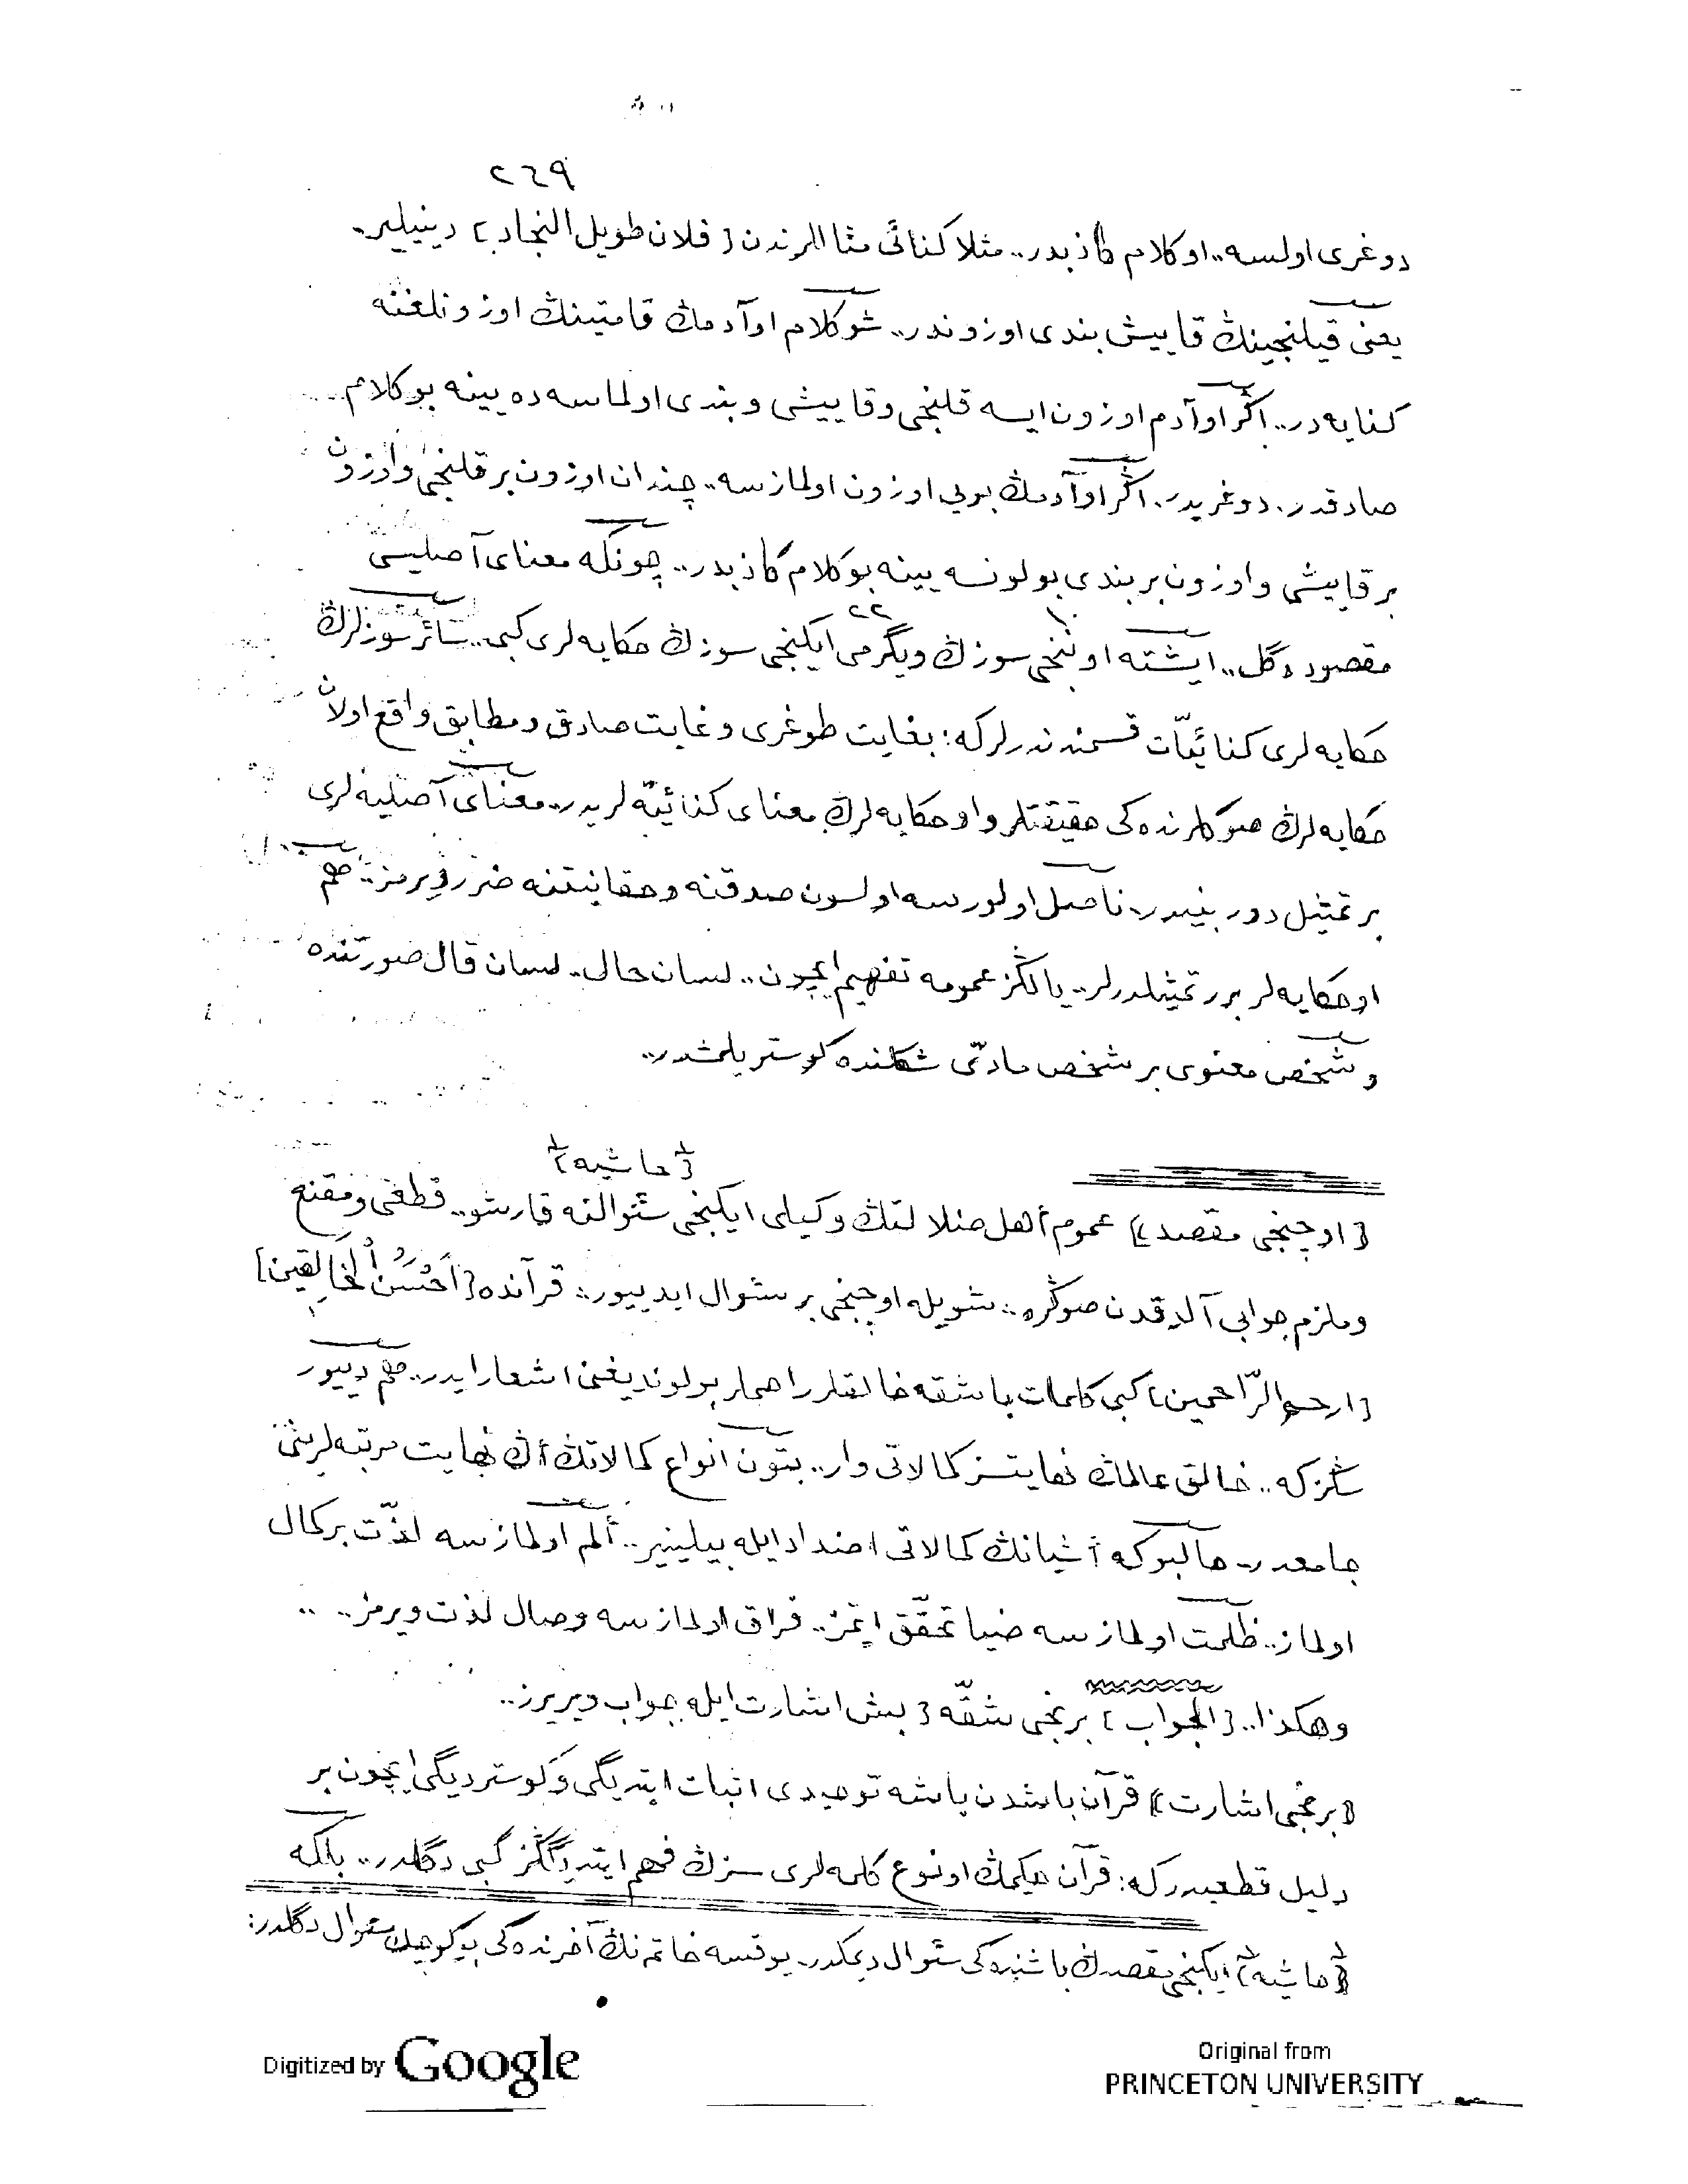 ٢٦٩
دوغری اولسه.. او کلام کاذبدر.. مثلا کنائی مثاللرندن [فلان طویل النجاد] دینیلیر.
یعنی قیلنجینڭ قاییش بندی اوزوندر.. شو کلام او آدمڭ قامتینڭ اوزونلغنه
کنایه در.. اگر او آدم اوزون ایسه قلنجی و قاییشی و بندی اولماسه ده یینه بو کلام
صادقدر. دوغریدر. اگر او آدمڭ بویی اوزون اولمازسه.. چندان اوزون بر قلنجی و اوزون
بر قاییشی و اوزون بر بندی بولونسه یینه بو کلام کاذبدر.. چونکه معنای آصلیسی
مقصود دگل.. ایشته اوننجی سوزڭ و یگرمی ایکنجی سوزڭ حکایه لری کبی.. سائر سوزلرڭ
١٠ ٢٢
حکایه لری کنائیّات قسمندندرلر که: بغایت طوغری و غایت صادق و مطابق واقع اولان
حکایه لرڭ صوڭلرنده کی حقیقتلر و او حکایه لرڭ معنای کنائیّه لریدر.. معنای آصلیه لری
بر تمثیل دوربینیدر. ناصل اولورسه اولسون صدقنه و حقانیتنه ضرر ویرمز.. هم
او حکایه لر برر تمثیلدرلر.. یالڭز عمومه تفهیم ایچون.. لسان حال.. لسان قال صورتنده
و شخص معنوی بر شخص مادّی شکلنده کوستریلمشدر..
{حاشیه}
[اوچنجی مقصد] عموم أهل ضلالتڭ وکیلی ایکنجی سئوالنه قارشو.. قطعی و مقنع
و ملزم جوابی آلدقدن صوڭره.. شویله اوچنجی بر سئوال ایدییور.. قرآنده [اَحْسَنُ الْخَالِقین]
[ارحم الرّاحمین] کبی کلمات باشقه خالقلر راحملر بولوندیغنی اشعار ایدر.. هم دییور
سڭز که.. خالق عالمڭ نهایتسز کمالاتی وار.. بتون انواع کمالاتڭ أڭ نهایت مرتبه لرینی
جامعدر.. حالبوکه أشیانڭ کمالاتی اضداد ایله بیلینیر.. ألم اولمازسه لذّت بر کمال
اولماز.. ظلمت اولمازسه ضیا تحقّق ایتمز.. فراق اولمازسه وصال لذت ویرمز.. ..
وهکذا.. [الجواب] برنجی شقّه [بش اشارت ایله جواب ویریرز..
[برنجی اشارت] قرآن باشدن باشه توحیدی اثبات ایتدیگی و کوستردیگی ایچون بر
دلیل قطعیدر که: قرآن حکیمڭ او نوع کلمه لری سزڭ فهم ایتدیگڭز گبی دگلدر.. بلکه
{حاشیه} ایکنجی مقصدڭ باشنده کی سئوال دیمکدر. یوقسه خاتمه نڭ آخرنده کی بو کوچك سئوال دگلدر:
Digitized by Google
Original from
PRINCETON UNIVERSITY